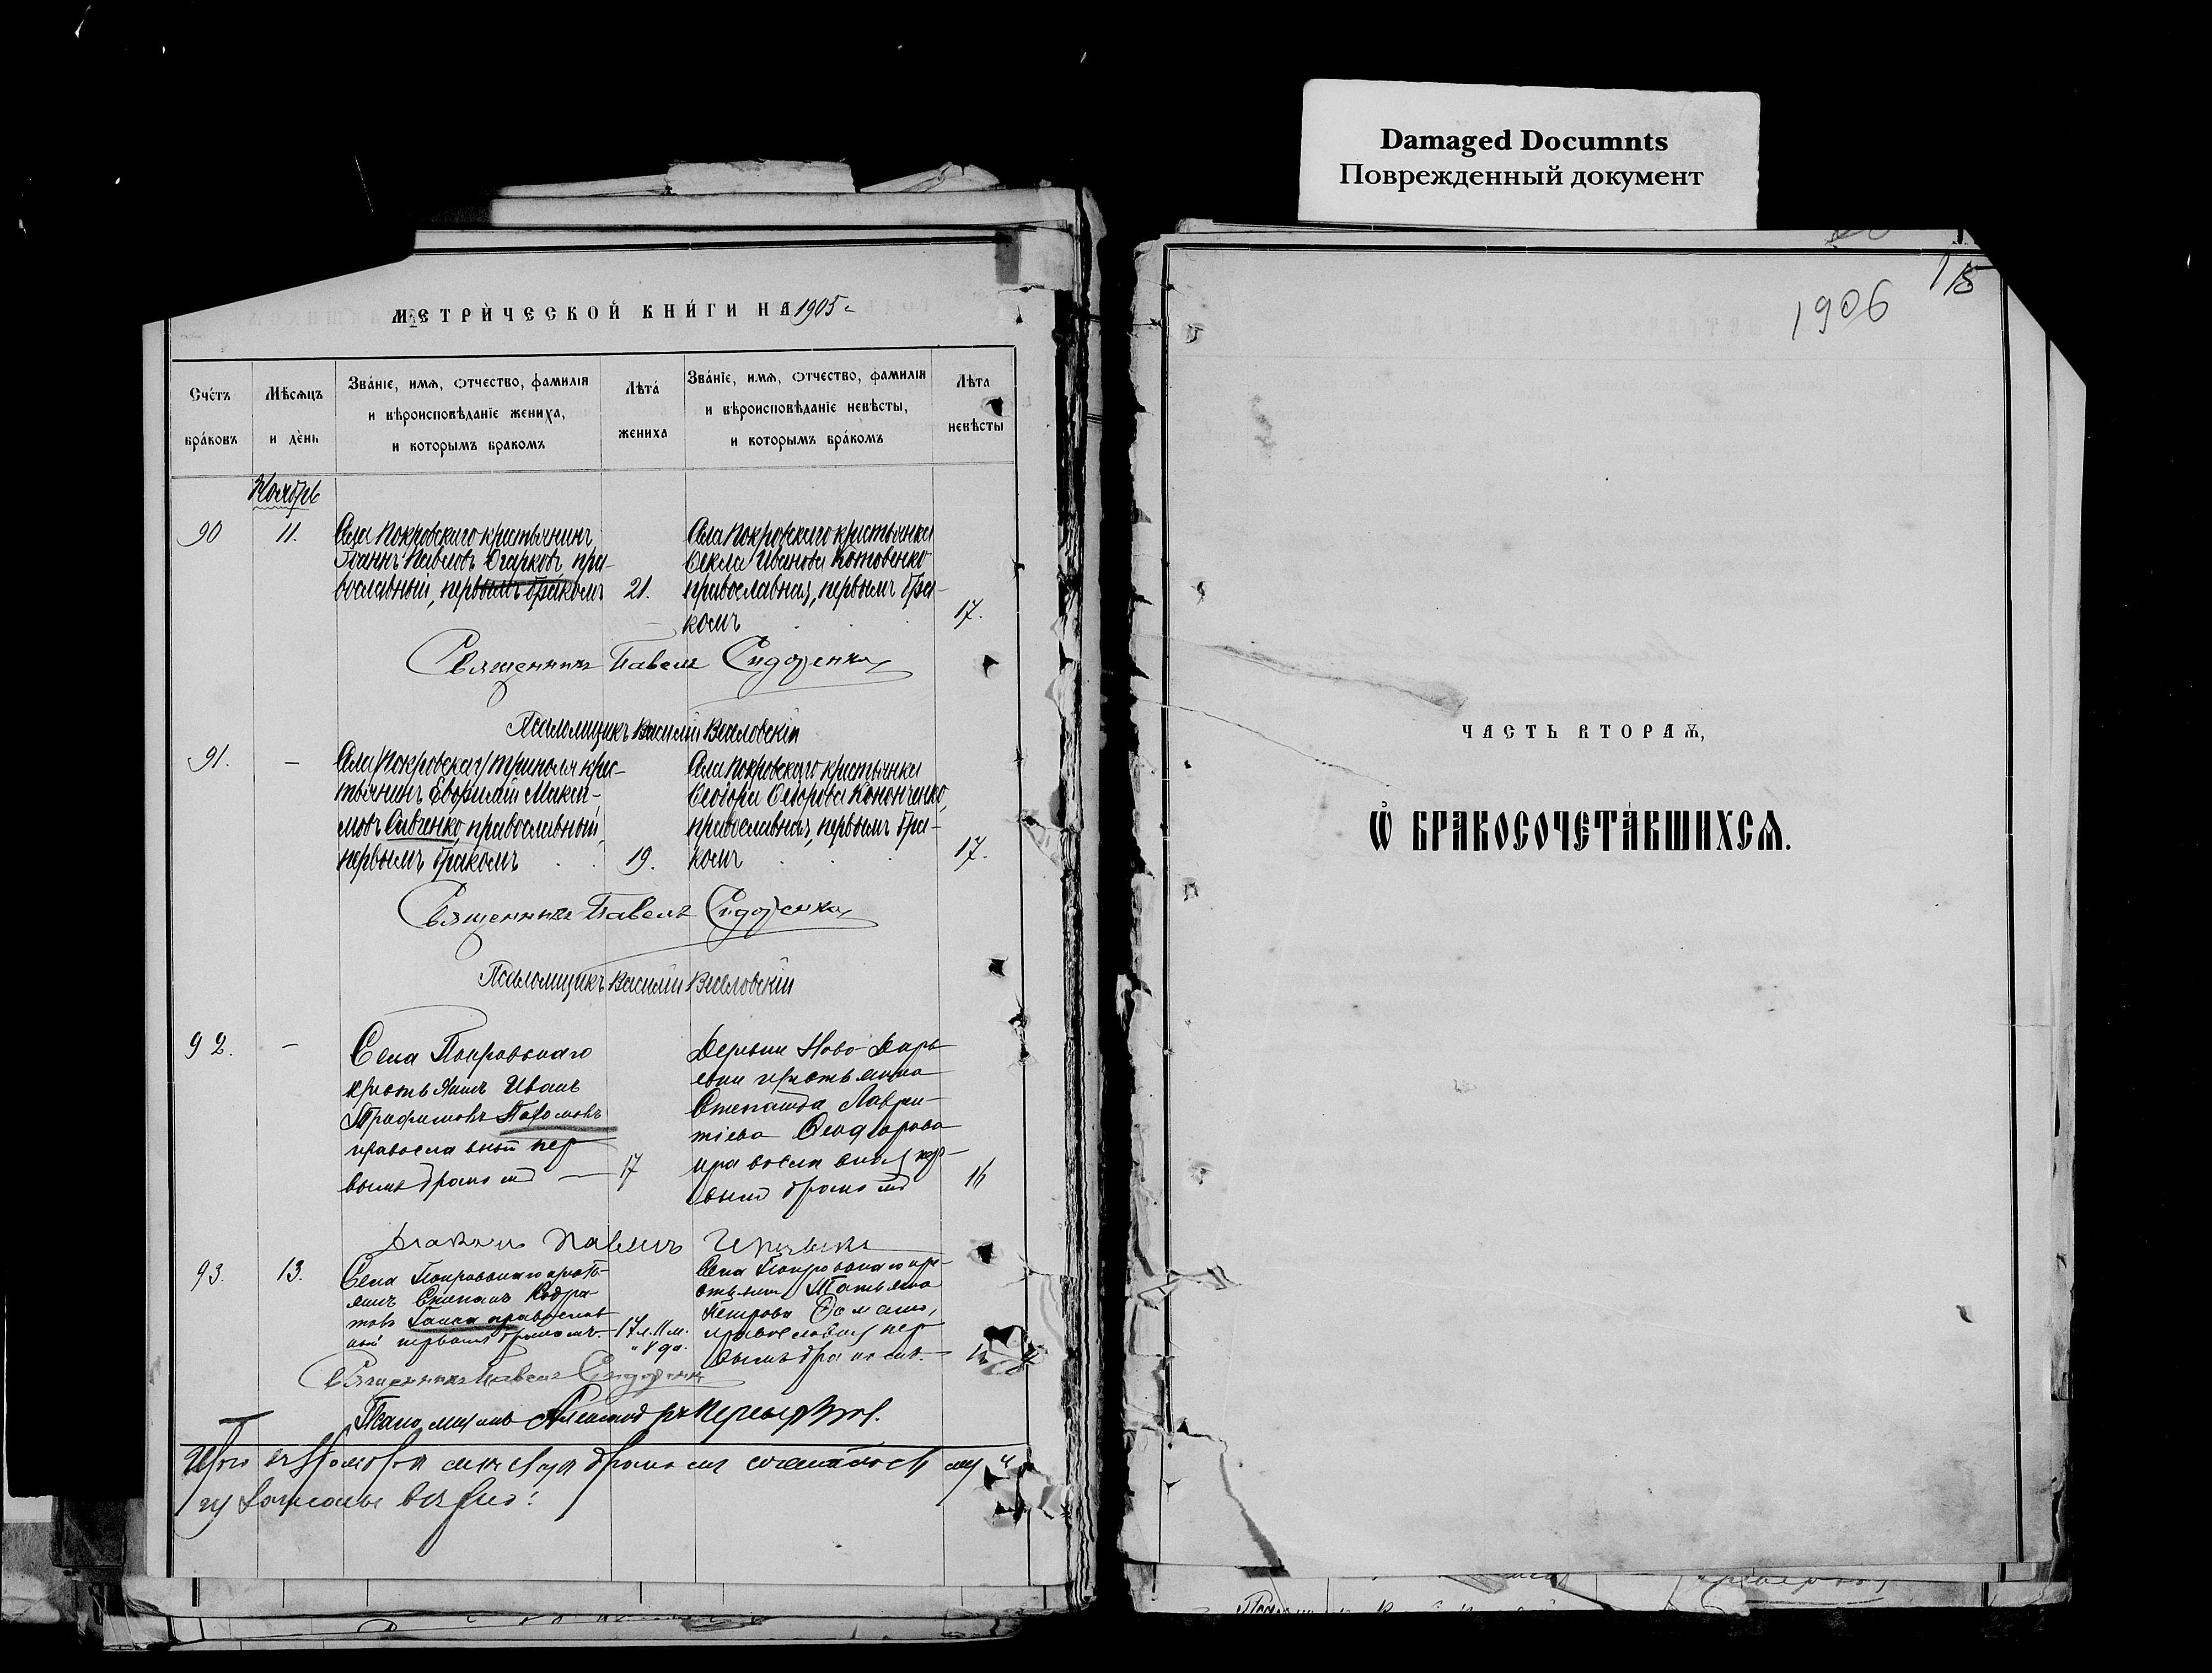 Damaged Documnts
Поврежденный документ
МЕТРИ́ЧЕСКОЙ КНИ́ГИ НА 1905 г.
Сче́тъ бра́ковъ
Мѣсѧцъ и де́нь
Зва́нїе, имѧ, ѻтчество, фамилїѧ и вѣроисповѣданїе жениха, и которымъ бракомъ
Лѣта́ жениха
Зва́нїе, имѧ, ѻтчество, фамилїѧ и вѣроисповѣданїе невѣсты, и которымъ бра́комъ
Лѣта невѣсты
Ноябрь
90
11.
Села Покровскаго крестьянинъ
Іоаннъ Павловъ Огарковъ, пра-
вославный, первымъ бракомъ
21.
Села Покровскаго крестьянка
Ѳекла Иванова Котовенко
православная, первымъ бра-
комъ
17.
Священникъ Павелъ Сидоренко
Псаломщикъ Василій Веселовскій
91.
-
Села Покровскаго крес-
тьянинъ Евфимій Макси-
мовъ Савченко, православный,
первымъ бракомъ
19.
Села Покровскаго крестьянка
Ѳеодора Ѳедорова Кононченко,
православная, первымъ бра-
комъ
17.
Священникъ Павелъ Сидоренко
Псаломщикъ Василій Веселовскій
92.
-
Села Покровскаго
крестьянинъ Иванъ
Трофимовъ Пахомовъ
православный пер
вымъ бракомъ
17
Деревни Ново-Дарь
евки крестьянка
Степанида Лаврен-
тіева Ѳеодорова
православная пер-
вымъ бракомъ
16
Павелъ
93.
13.
Села Покровскаго кресть-
янинъ Степанъ Кодра-
товъ православ
ный первымъ бракомъ
17 л. 11 м.
Села Покровскаго кре-
стьянка Татьяна
Петрова
православная пер
вымъ бракомъ.
Священникъ Павелъ Сидоренко
Псаломщикъ
Итого въ мѣсяцѣ бракомъ сочеталось
ЧАСТЬ ВТОРАѦ,
Ѽ БРАКОСОЧЕТА́ВШИХСѦ.
1906
15